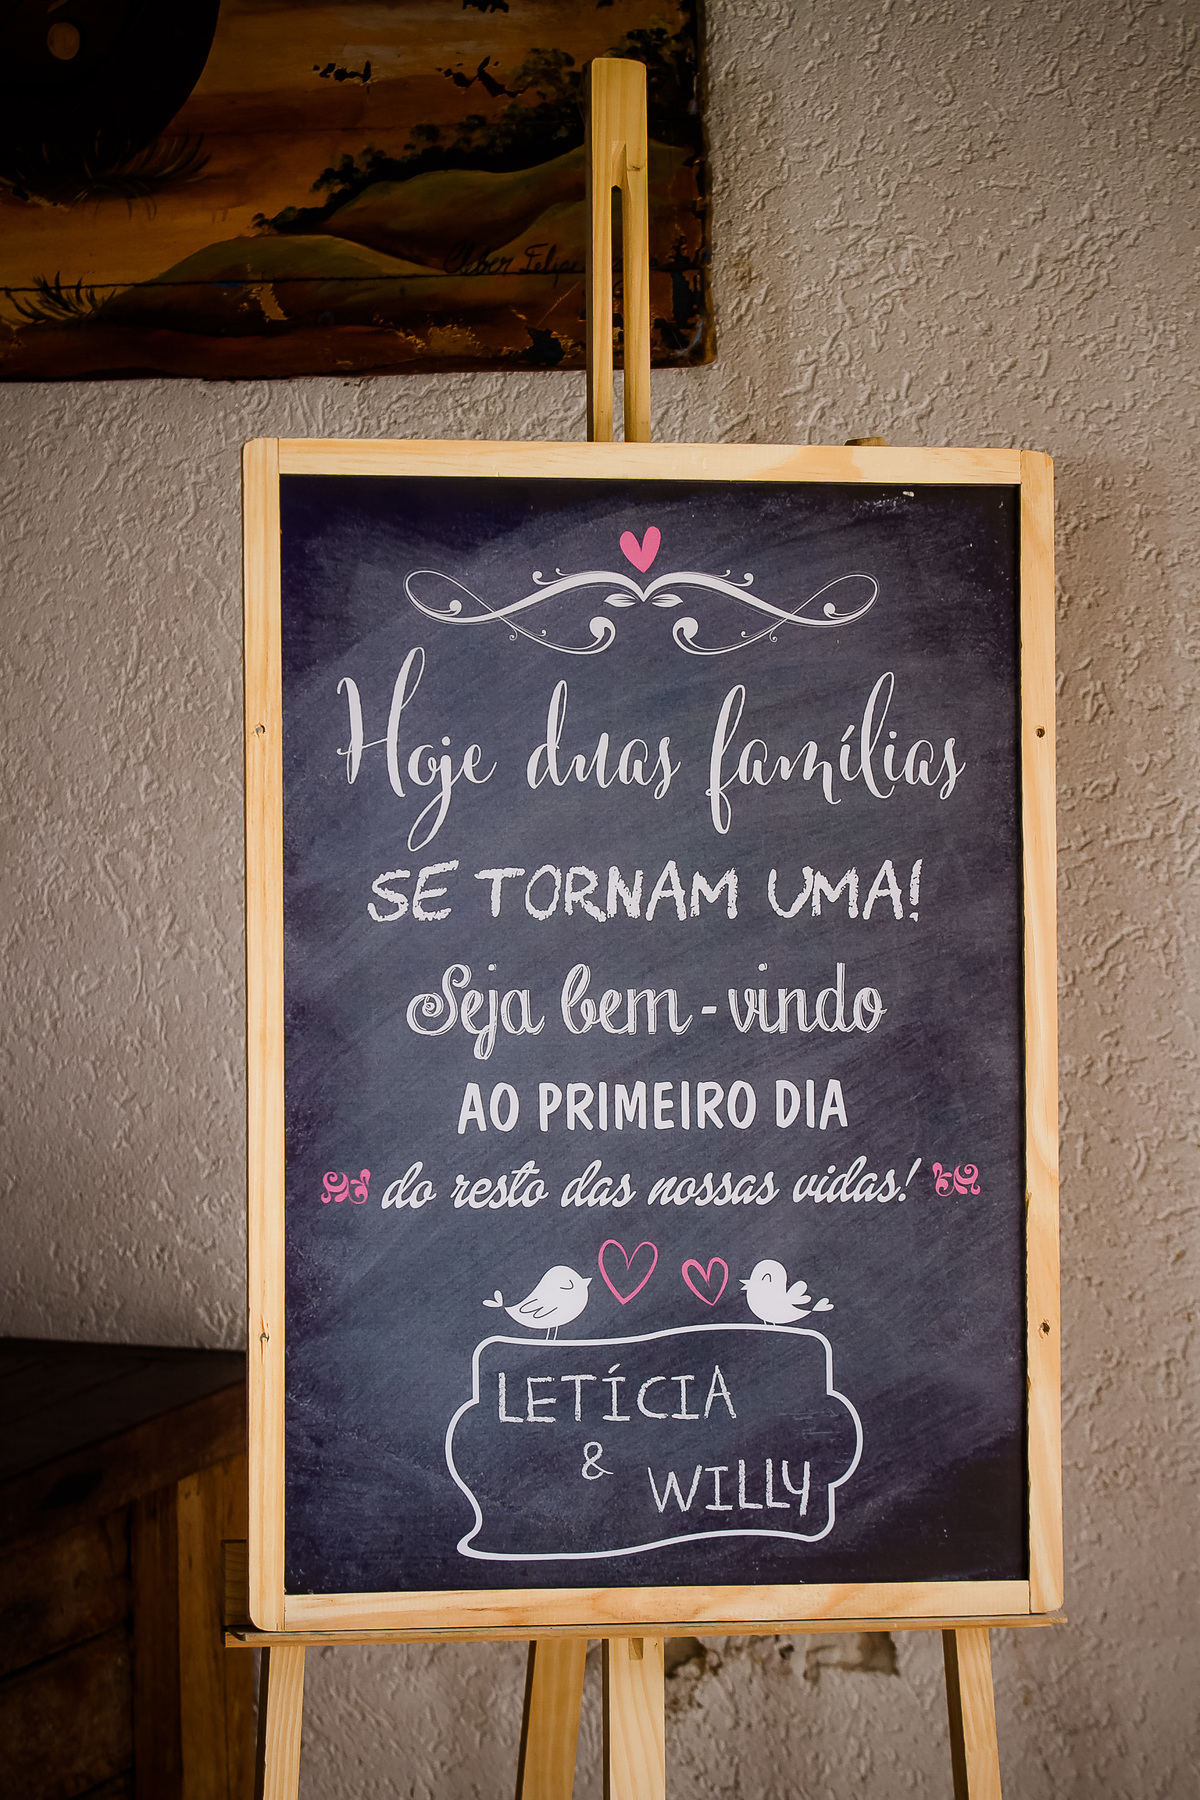 Hoje duas famílias
SE TORNAM UMA!
Seja bem-vindo
AO PRIMEIRO DIA
do resto das nossas vidas!
LETÍCIA
&
WILLY